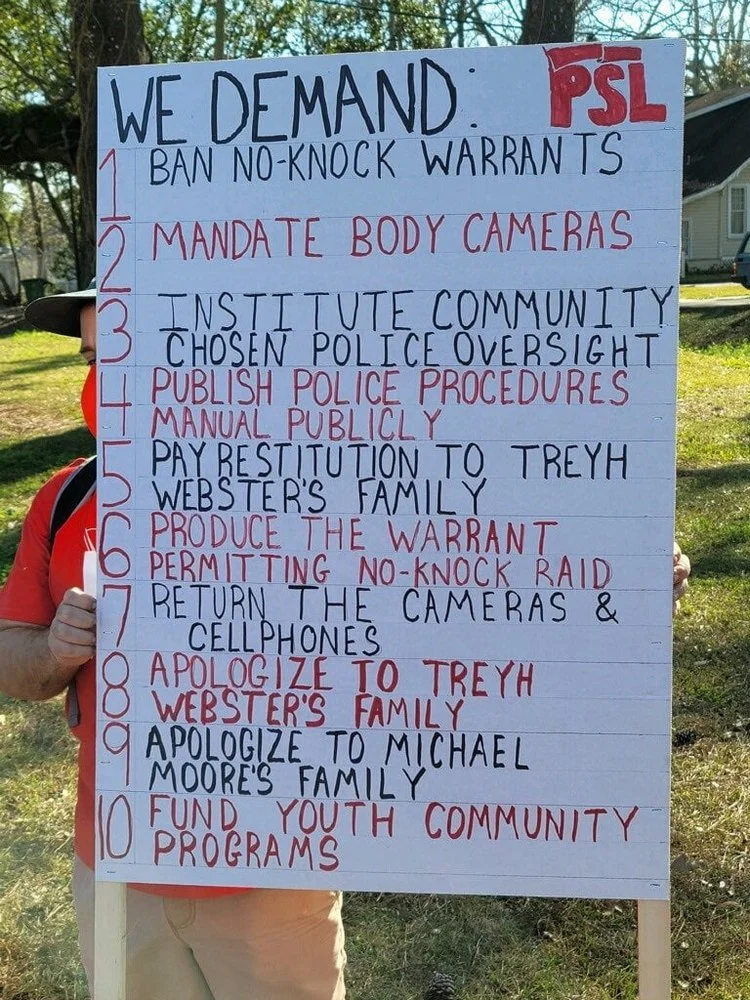 WE DEMAND: PSL
1 BAN NO-KNOCK WARRANTS
2 MANDATE BODY CAMERAS
3 INSTITUTE COMMUNITY
CHOSEN POLICE OVERSIGHT
4 PUBLISH POLICE PROCEDURES
MANUAL PUBLICLY
5 PAY RESTITUTION TO TREYH
WEBSTER'S FAMILY
6 PRODUCE THE WARRANT
PERMITTING NO-KNOCK RAID
7 RETURN THE CAMERAS &
CELLPHONES
8 APOLOGIZE TO TREYH
WEBSTER'S FAMILY
9 APOLOGIZE TO MICHAEL
MOORE'S FAMILY
10 FUND YOUTH COMMUNITY
PROGRAMS